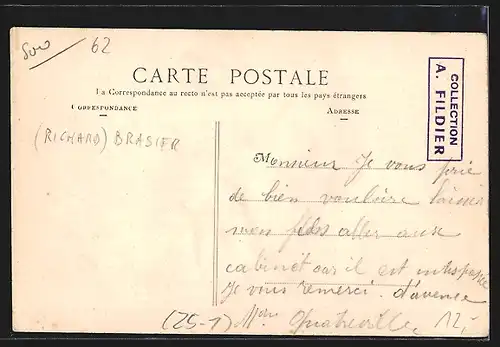 500
62
CARTE POSTALE
La Correspondance au recto n'est pas acceptée par tous les pays étrangers
CORRESPONDANCE
ADRESSE
COLLECTION
A. FILDIER
(RICHARD) BRASIER
Monsieur Je vous prie
de bien vouloire laisser
mon fils aller aux
cabinet car il est
Je vous remerci. d'avence
(25-1) Mme Quatreville 12,-